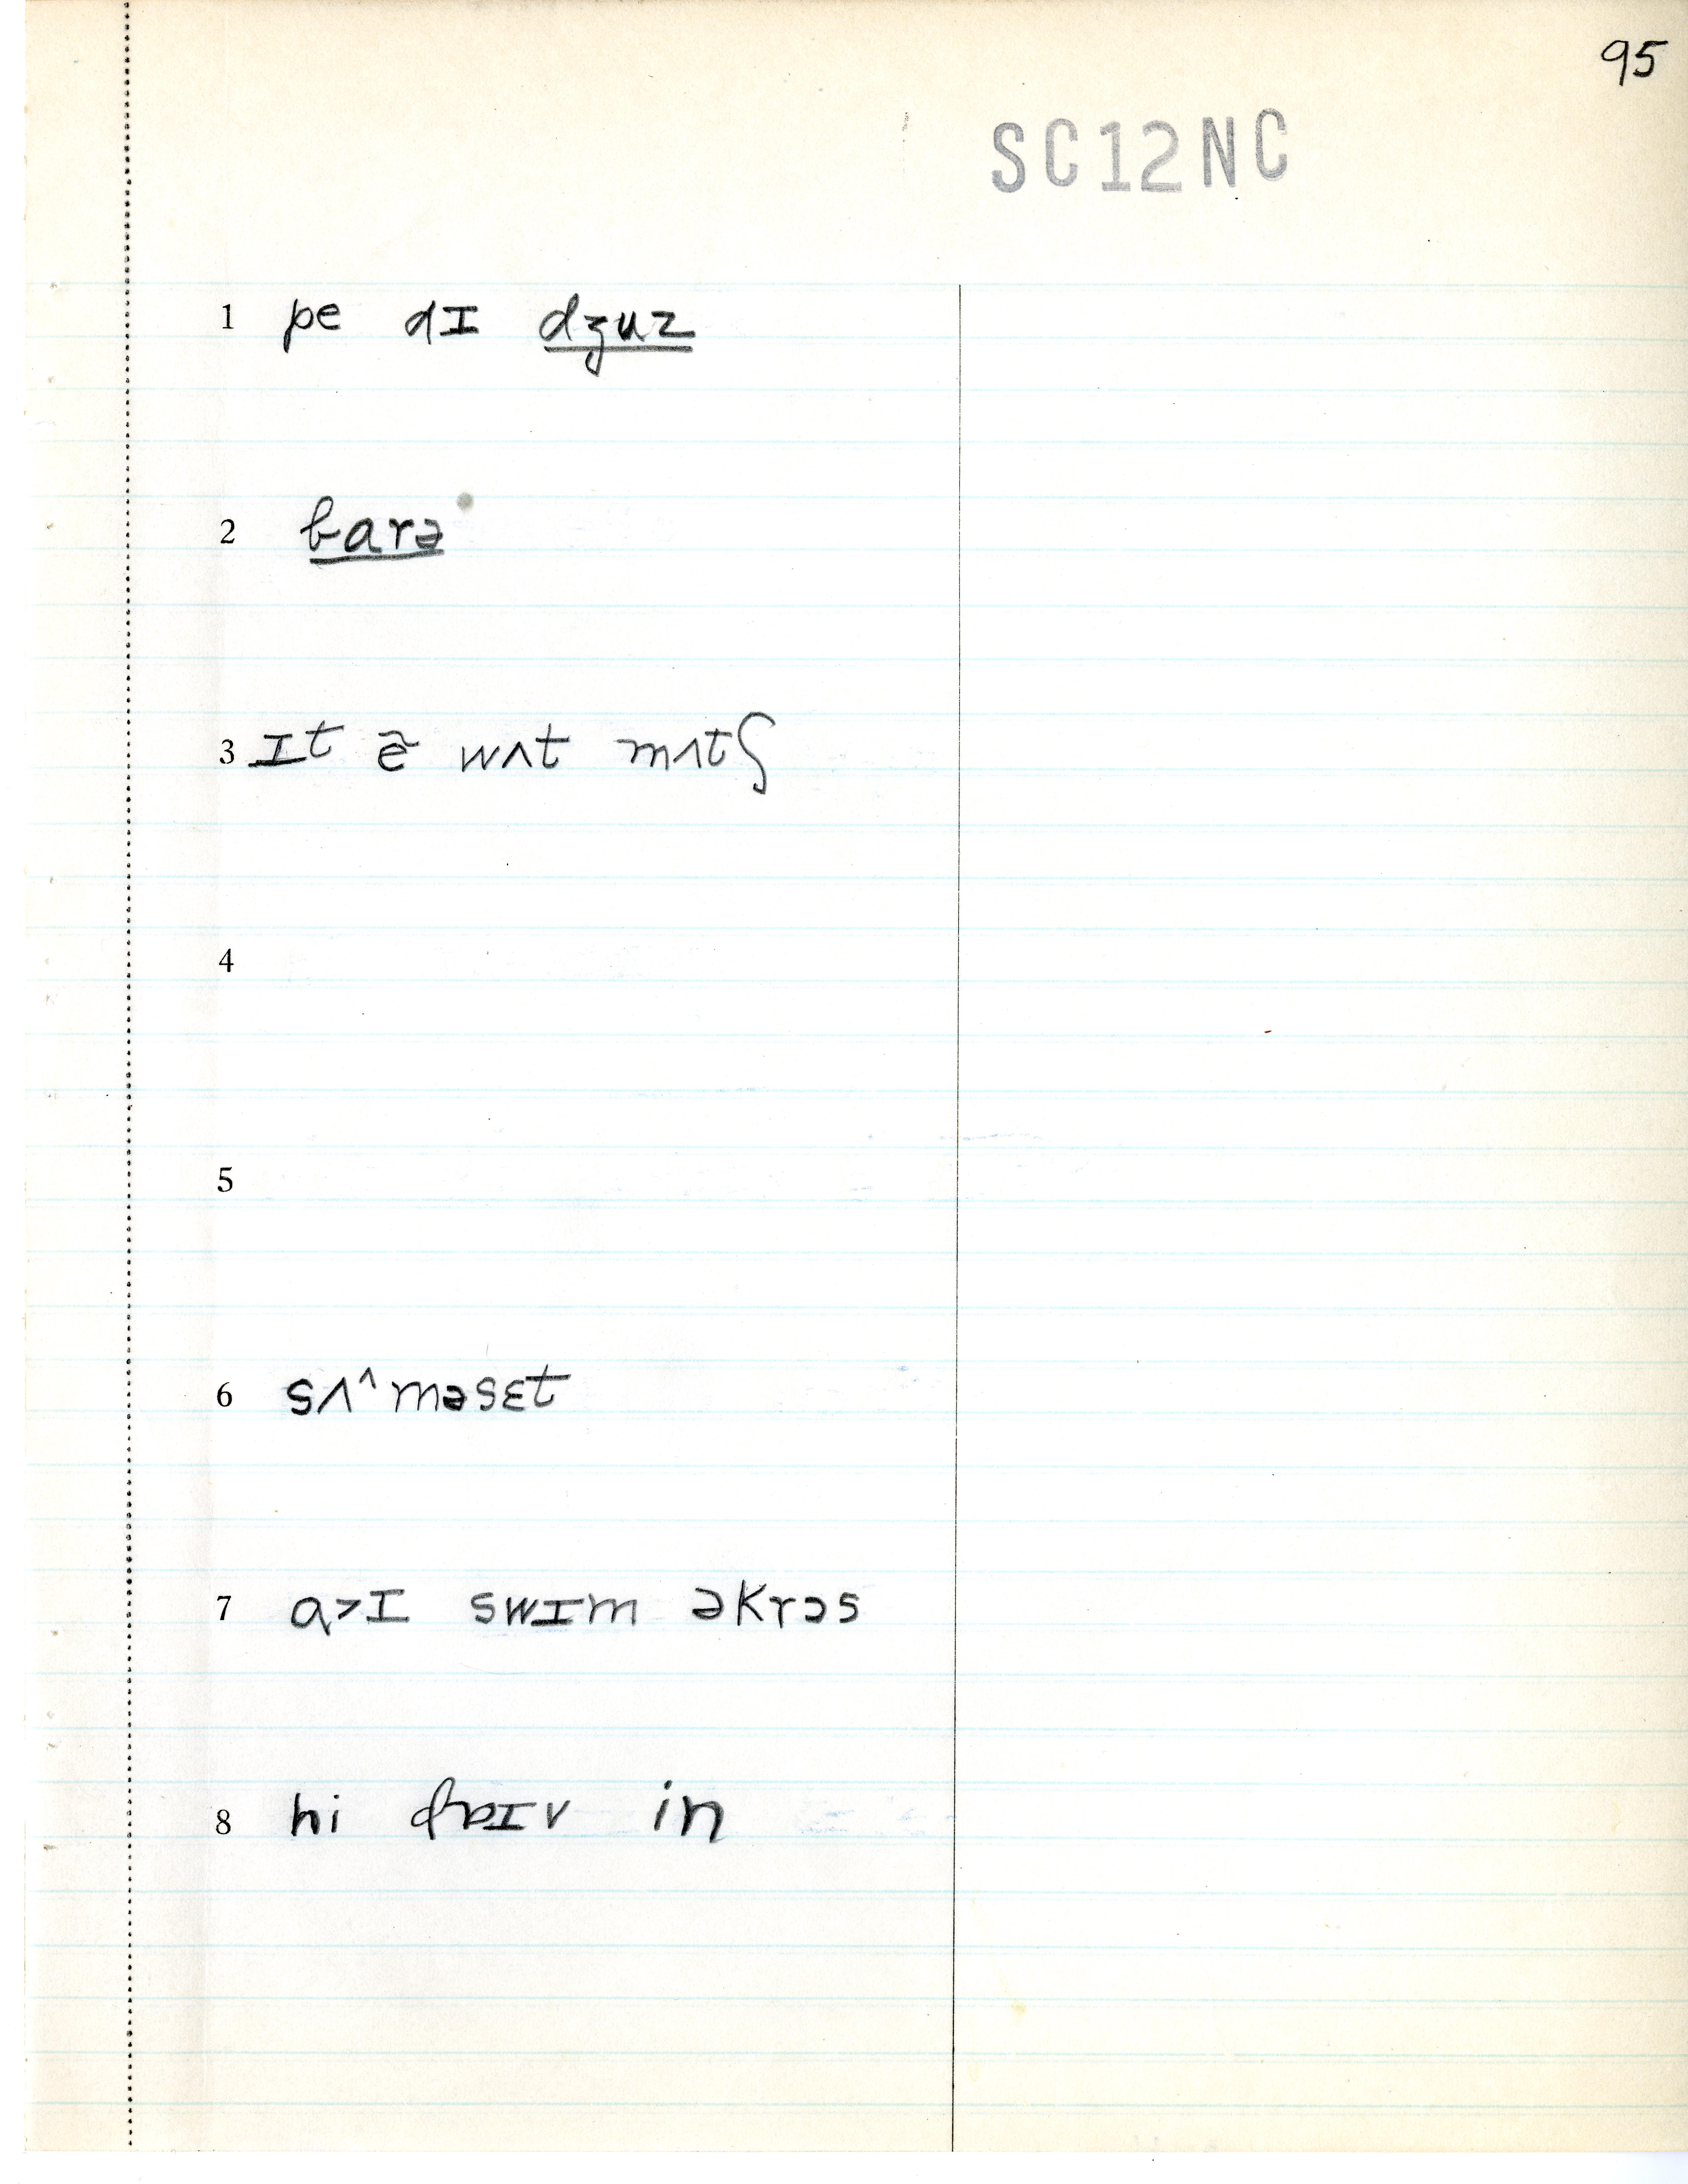 95
SC12NC
1 pe dɪ dʒuz
2 barə
3 ɪt ẽ wʌt mʌtʃ
4
5
6 sʌ^məsɛt
7 ɑ>ɪ swɪm əkrɔs
8 hi in